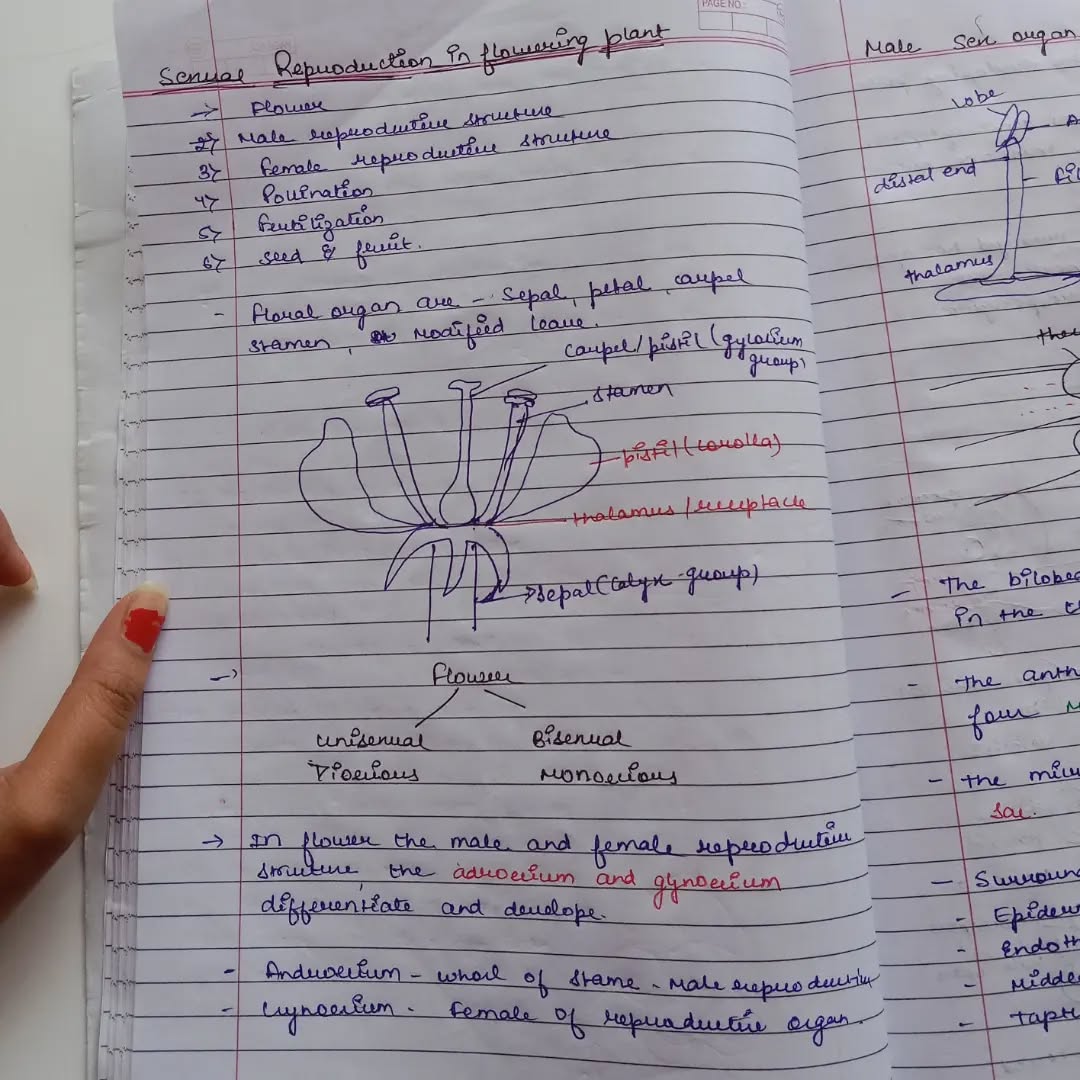 PAGE NO.:
Sexual Reproduction in flowering plant
-> Flower
2> Male reproductive structure
3> Female reproductive structure
4> Pollination
5> Fertilization
6> seed & fruit.
- floral organ are - sepal, petal, carpel
stamen, modified leave.
carpel/pistil (gynoecium
group)
stamen
pistil (corolla)
thalamus / receptacle
->sepal (calyx-group)
-> flower
unisexual Bisexual
Dioecious Monoecious
-> In flower the male and female reproductive
structure, the adroecium and gynoecium
differentiate and develope.
- Androecium - whorl of stame. Male reproductive
- Gynoecium. Female of reproductive organ.
Male Sex organ
lobe
distal end
thalamus
- The bilobed
in the
- The anth
four
- The micr
sac.
- Surroun
- Epider
- Endoth
- Midd
- Tap